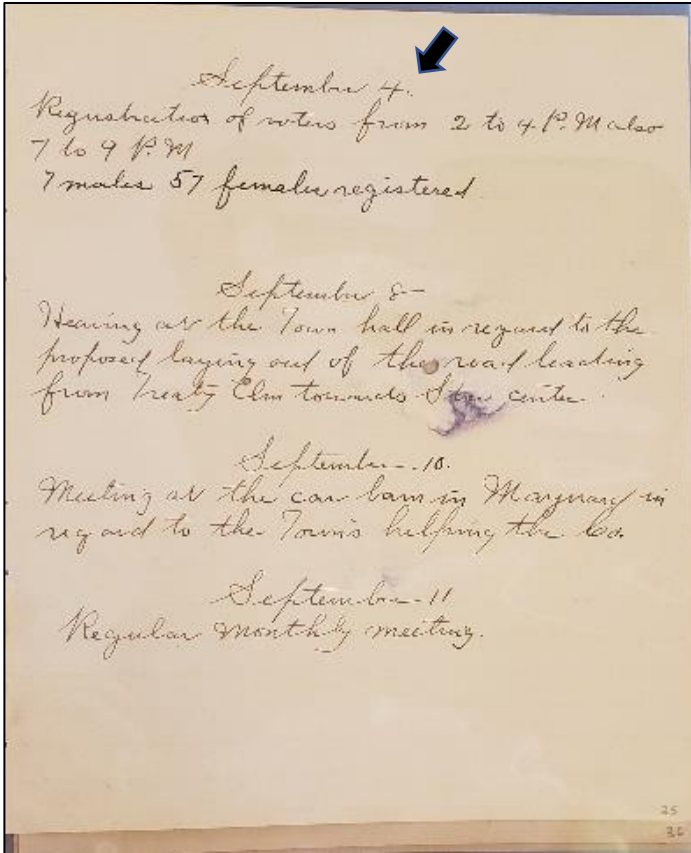 September 4.
Registration of voters from 2 to 4 P.M also
7 to 9 P.M
7 males 57 females registered
September 8
Hearing at the Town hall in regard to the
proposed laying out of the road leading
from Treaty Elm towards Stow center.
September 10.
Meeting at the car barn in Maynard in
regard to the Town's helping the Co.
September 11
Regular monthly meeting.
25
36